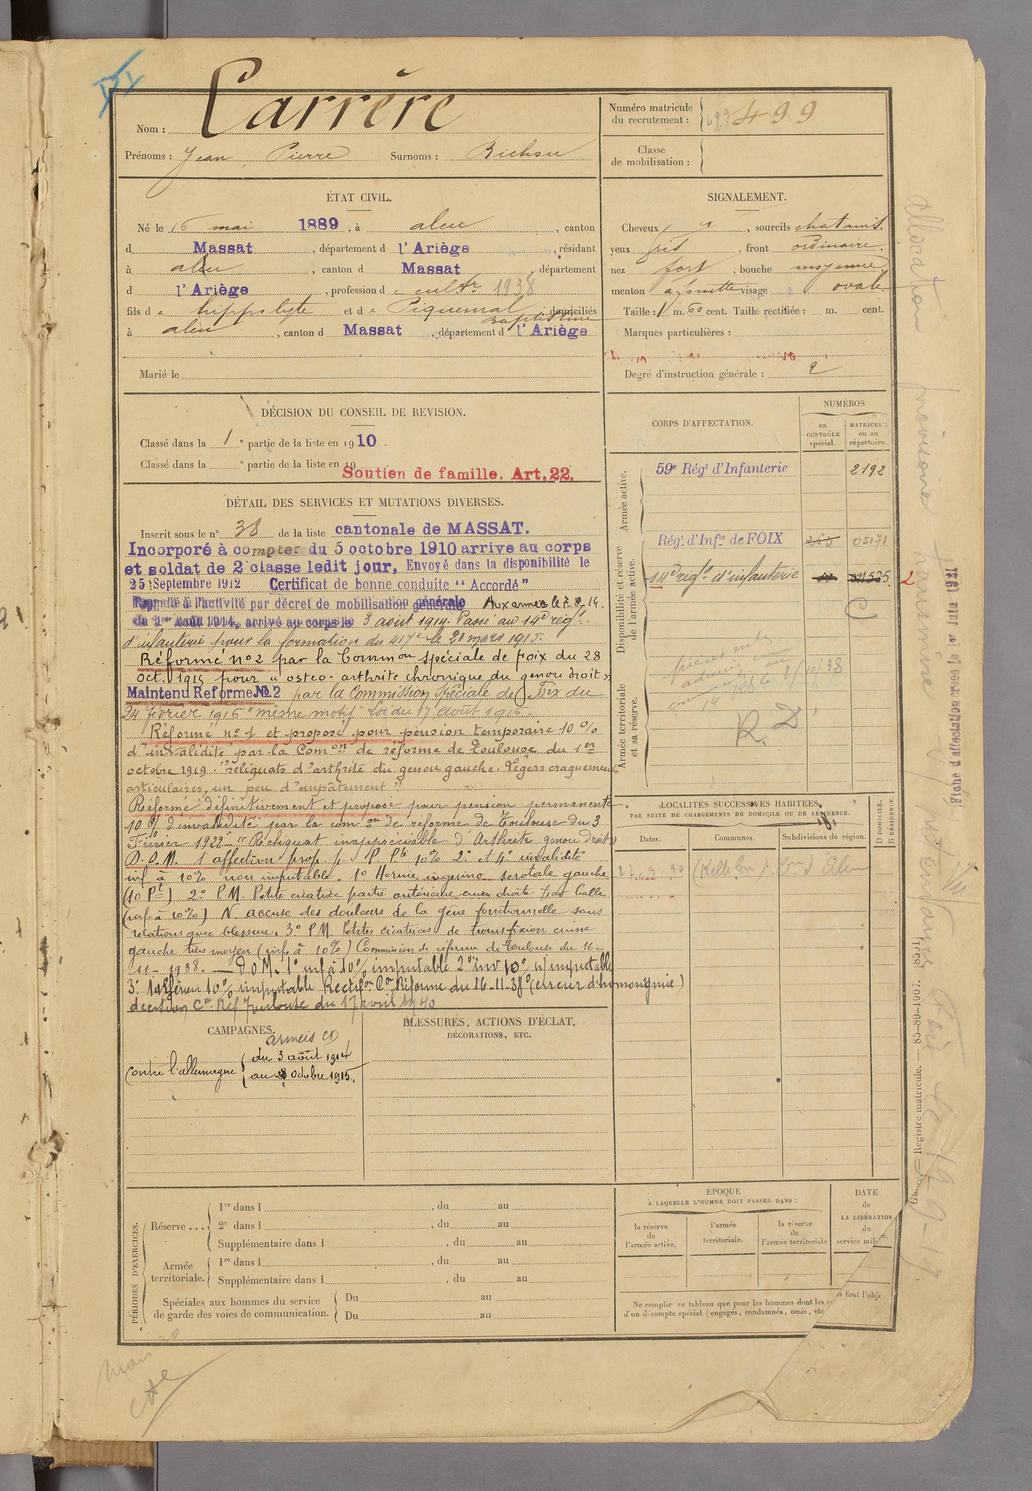 Nom : Carrère
Prénoms : Jean, Pierre Surnoms :
Numéro matricule du recrutement : 499
Classe de mobilisation :
ÉTAT CIVIL.
Né le 16 mai 1889, à aleu, canton
d Massat, département d l'Ariège, résidant
à aleu, canton d Massat, département
d l'Ariège, profession d cultr 1938
fils d'e hippolyte et d e Piquemal Baptistine domiciliés
à aleu, canton d Massat, département d l'Ariège
Marié le
SIGNALEMENT.
Cheveux et, sourcils chatains.
yeux gris, front ordinaire.
nez fort, bouche moyenne
menton à fossette visage ovale.
Taille : 1 m. 60 cent. Taille rectifiée : m. cent.
Marques particulières :
Degré d'instruction générale : 2
DÉCISION DU CONSEIL DE REVISION.
Classé dans la 1e partie de la liste en 1910.
Classé dans la e partie de la liste en 19
Soutien de famille. Art. 22.
DÉTAIL DES SERVICES ET MUTATIONS DIVERSES.
Inscrit sous le n° 38 de la liste cantonale de MASSAT.
Incorporé à compter du 5 octobre 1910 arrive au corps
et soldat de 2 classe ledit jour, Envoyé dans la disponibilité le
25 Septembre 1912 Certificat de bonne conduite "Accordé"
Rappelé à l'activité par décret de mobilisation générale Aux armées le 7.8.14.
du 1er Août 1914, arrivé au corps le 3 août 1914. Passé au 14e régt.
d'infanterie pour la formation du 417e le 20 mars 1915.
Réformé n°2 par la Common spéciale de Foix du 28
oct. 1915 pour "osteo-arthrite chronique du genou droit"
Maintenu Réformé No 2 par la Commission Spéciale de Foix du
24 février 1916 "même motif" Loi du 17 Août 1915.
Réformé n°1 et proposé pour pension temporaire 10%
d'invalidité par la Comon de réforme de Toulouse du 1er
octobre 1919. "reliquats d'arthrite du genou gauche. Légers craquements
articulaires, un peu d'empâtement"
Réformé définitivement et proposé pour pension permanente
10% d'invalidité par la comon de réforme de Toulouse du 3
Février 1922 "Reliquat inappréciable d'Arthrite genou droit"
D.O.M. 1 affection prop. p. P. Pte 10% 2° et 4° invalidité
inf. à 10% non imputable. 1° Hernie inguino scrotale gauche
(10 Pt) 2° P.M. Petite cicatrice partie antérieure cuisse droite par balle
(inf. à 10%) N. accuse des douleurs de la gêne fonctionnelle sans
relations avec blessure. 3° P.M. Petites cicatrices de transfixion cuisse
gauche tiers moyen (inf. à 10%) Commission de réforme de Toulouse du 16-
11-1938. — D.O.M. 1° inf à 10% imputable 2° inv 10% n/ imputable
3° inférieur 10% imputable Rectifon Con Réforme du 16-11-38 (erreur d'homonymie)
décision Con Réf Toulouse du 17 avril 1940
CORPS D'AFFECTATION.
NUMÉROS
AU CONTRÔLE spécial.
MATRICULE ou au répertoire.
Armée active.
59e Régt d'Infanterie 2192
Disponibilité et réserve de l'armée active.
Régt. d'Infie de FOIX 265 05171
14e régt d'infanterie
Armée territoriale et sa réserve.
R. D.
LOCALITÉS SUCCESSIVES HABITÉES,
PAR SUITE DE CHANGEMENTS DE DOMICILE OU DE RÉSIDENCE.
Dates. Communes. Subdivisions de région. D DOMICILE. R RÉSIDENCE.
CAMPAGNES.
armées CD
Contre l'allemagne du 3 août 1914
au 28 Octobre 1915.
BLESSURES, ACTIONS D'ÉCLAT,
DÉCORATIONS, ETC.
PÉRIODES D'EXERCICES.
Réserve ... 1re dans l , du au
2e dans l , du au
Supplémentaire dans l , du au
Armée territoriale. 1re dans l , du au
Supplémentaire dans l , du au
Spéciales aux hommes du service de garde des voies de communication. Du au
Du au
ÉPOQUE
À LAQUELLE L'HOMME DOIT PASSER DANS :
la réserve de l'armée active.
l'armée territoriale.
la réserve de l'armée territoriale
DATE
de
LA LIBÉRATION
du
service mili
Ne remplir ce tableau que pour les hommes dont les
d'un décompte spécial (engagés, condamnés, omis, etc
Registre matricule. — 85-89-1907.